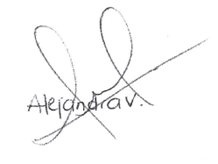 Alejandra V.